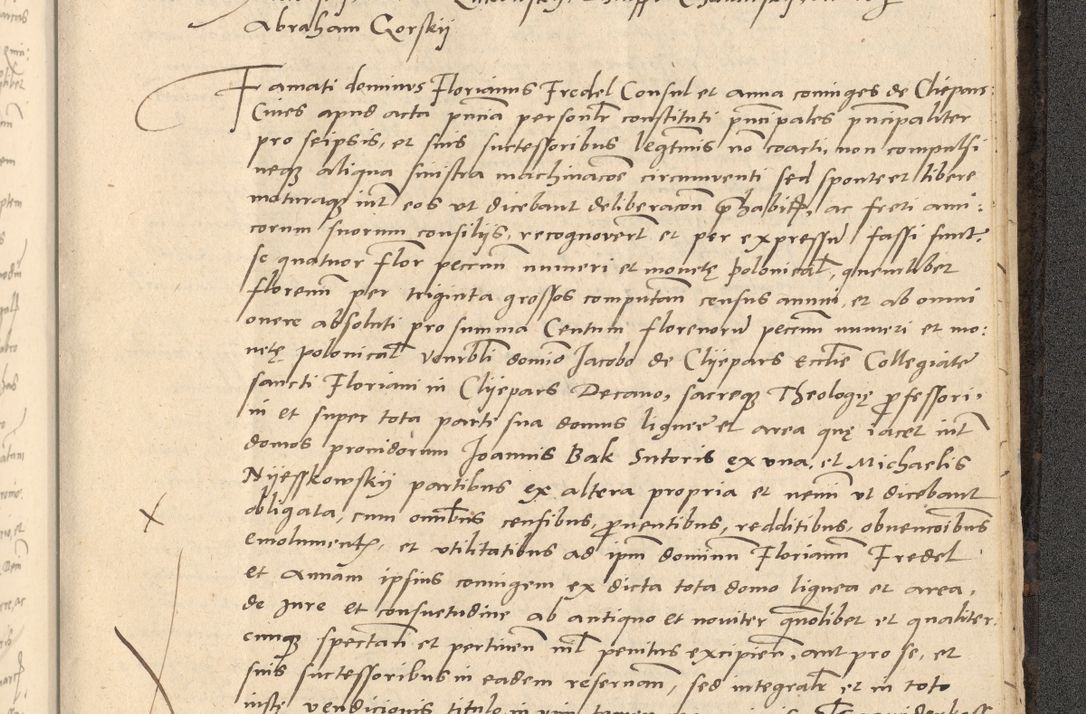 Abraham Gorskij
Famati dominus Florianus Fredel Consul et anna coniuges de Clepars:
Cives apud acta pñcia personlr constituti pñcipales pñcipaliter
pro seipsis, et suis successoribus legtmis nõ coacti, non compulsi
neqz aliqua sinistra machinacõe circumventi sed sponte et libere
maturaqz int eos ut dicebant deliberacõn prhabita, ac freti ami:
corum suorum consilijs, recognovert et per expressũ fassi sunt,
se quatuor flor peccun numeri et monetę polonical, quemlibet
florenũ per triginta grossos computan census annui, et ab omni
onere absoluti pro summa Centum florenorũ peccun numeri et mo:
netę polonical venrbli domino Jacobo de Clijepars Ecclie Collegiate
sancti Floriani in Clijepars Decano, sacreqz Theologię pfessori,
in et super tota parte sua domus lignee et area quę iacet int
domos providorum Joannis Bak Sutoris ex una, et Michaelis
Nijesskowskij partibus ex altera propria et nemi ut dicebant
obligata, cum omibus censibus, pventibus, redditibus, obvencoibus
emolument, et utilitatibus ad ipm dominũ Florianũ Fredel
et Annam ipsius coniugem ex dicta tota domo lignea et area,
de jure et consuetudine ab antiquo et noviter qmolibet et qualiter:
cunqz spectan et pertinen nil penitus excipien, aut pro se, et
suis successoribus in eadem reservan, sed integralr et in toto
iuste vendicionis titulo in vim